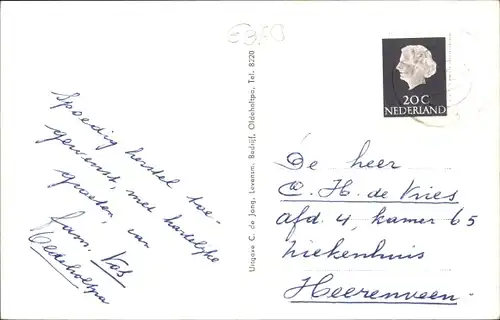 €3,50
Spoedig herstel toe-
gewenst, met hartelijke
groeten, van
fam. Vos
Oldeholtpa
Uitgave C. de Jong, Levensm. Bedrijf, Oldeholtpa, Tel. 8220
20 C
NEDERLAND
De heer
C. H. de Vries
afd. 4, kamer 65
Ziekenhuis
Heerenveen